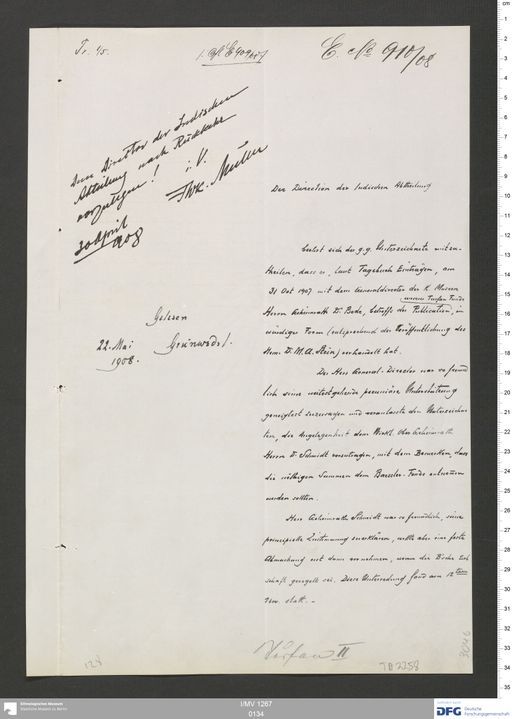 Tr. 45.
E. No 910/08
Dem Director der Indischen
Abteilung nach Rückkehr
vorzulegen!
i. V.
FWK. Müller
30 April
908
Gelesen
22. Mai
1908.
Grünwedel.
Der Direction der Indischen Abtheilung
beehrt sich der g. g. Unterzeichnete mitzu-
theilen, dass er, laut Tagebuch Einträgen, am
31 Oct 1907 mit dem Generaldirector der K. Museen
Herrn Geheimrath Dr. Bode, betreffs der Publication, in
unserer Turfan Funde
würdiger Form (entsprechend der Veröffentlichung des
Herrn Dr. M. A. Stein) verhandelt hat.
Der Herr General-Director war so freund
lich seine weitestgehende pecuniäre Unterstützung
geneigtest zuzusagen und veranlasste den Unterzeichne-
ten, die Angelegenheit dem Wirkl. Ober Geheimrath
Herrn Dr. Schmidt vorzutragen, mit dem Bemerken, dass
die nöthigen Summen dem Baessler-Fonds entnommen
werden sollten.
Herr Geheimrath Schmidt war so freundlich, seine
principielle Zustimmung zu erklären, wollte aber eine feste
Abmachung erst dann vornehmen, wenn die
schaft geregelt sei. Diese Unterredung fand am 12ten
Nov. statt. -
Turfan II
128
TB 2358
3046
Ethnologisches Museum
Staatliche Museen zu Berlin
I/MV 1267
0134
DFG Deutsche
Forschungsgemeinschaft